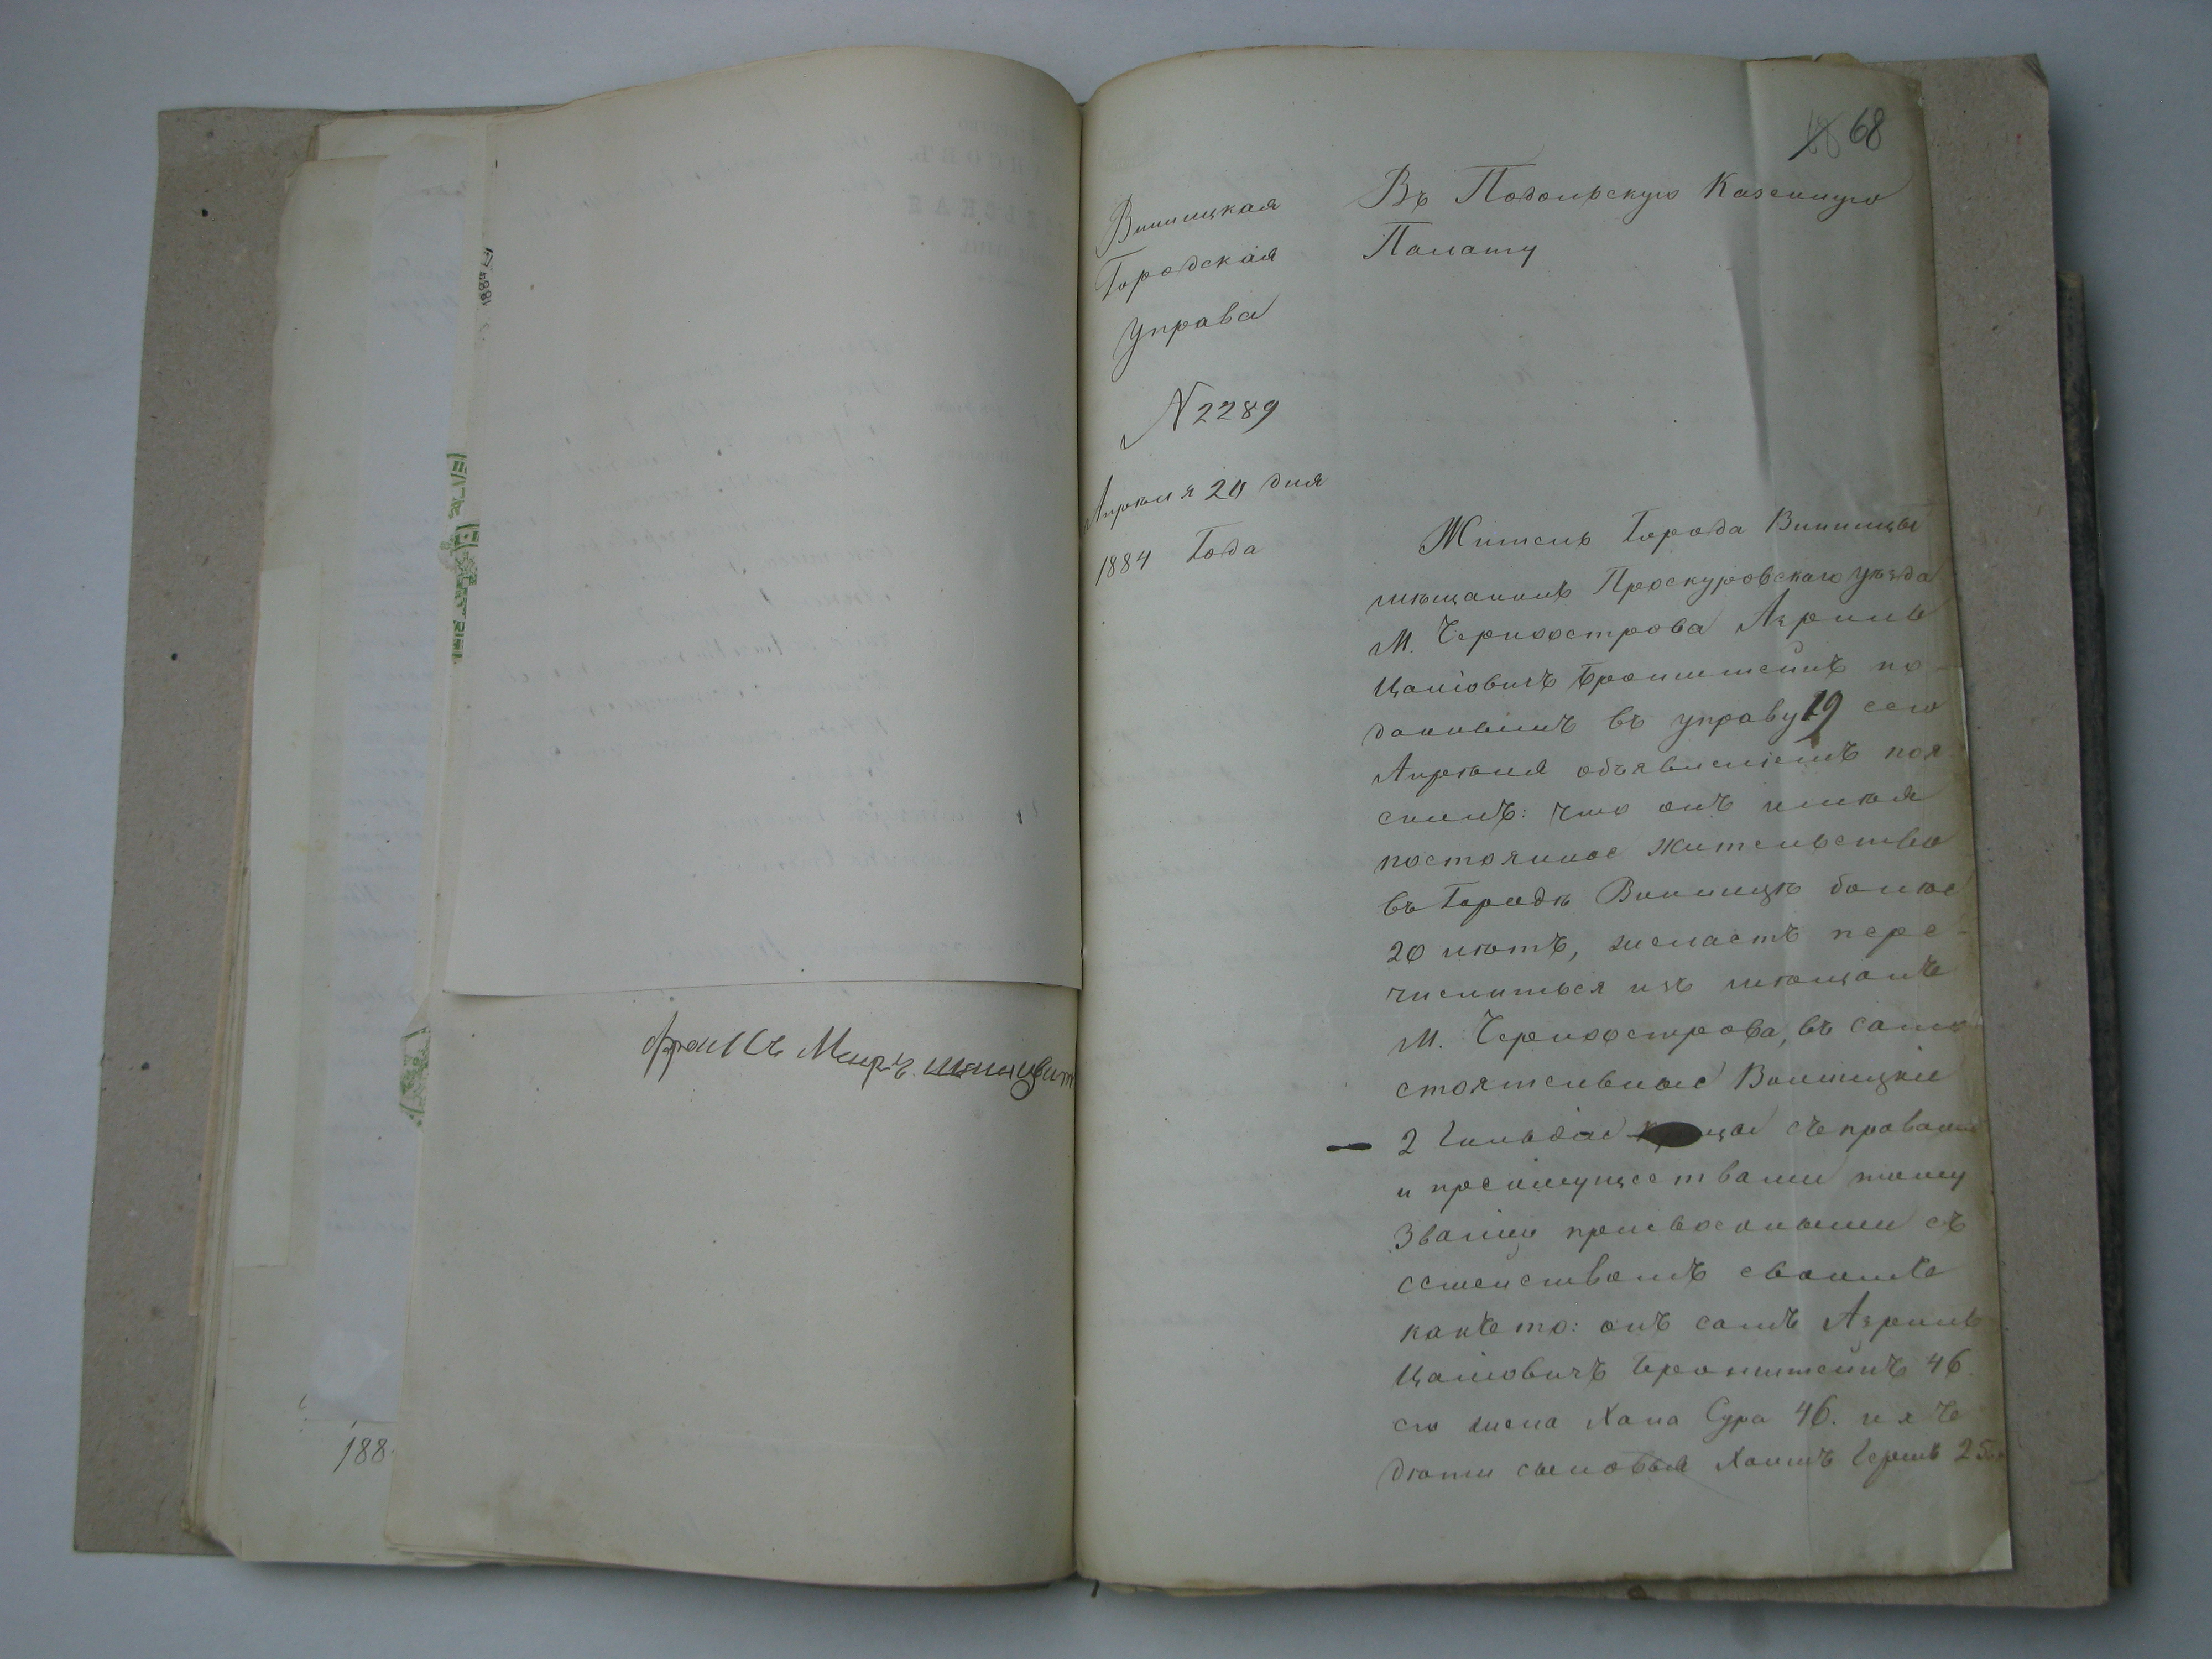 188
Франкъ Мееръ
68
Винницкая
Городская
Управа
N 2289
Апрѣля 20 дня
1884 Года
Въ Подольскую Казенную
Палату
Житель Города Винницы
мѣщанинъ Проскуровскаго уѣзда
М. Черноострова Азриль
Цаліовичъ Бронштейнъ по-
даннымъ въ управу 19 сего
Апрѣля объявленіемъ поя
снилъ: что онъ имѣя
постоянное жительство
въ Городѣ Винницѣ болѣе
20 лѣтъ, желаетъ пере-
числиться изъ мѣщанъ
М. Черноострова, въ само
стоятельные Винницкіе
2 Гильдіи купцы съ правами
и преимуществами тому
Званію присвоенными съ
семействомъ своимъ
какъ то: онъ самъ Азриль
Цаліовичъ Бронштейнъ 46
его жена Хана Сура 46. ихъ
дѣти сыновья Хаимъ Гершъ 25